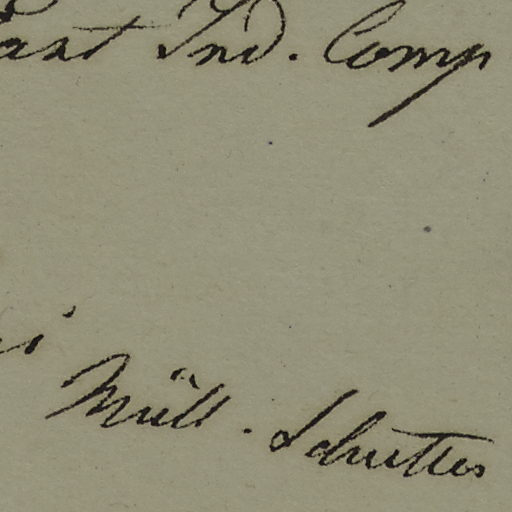 East Ind. Comp
i
Müll. Schuttes